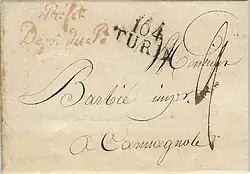 Préfet
Dépt. du Pô
104
TURIN
Monsieur
Barbié
a Carmagnole